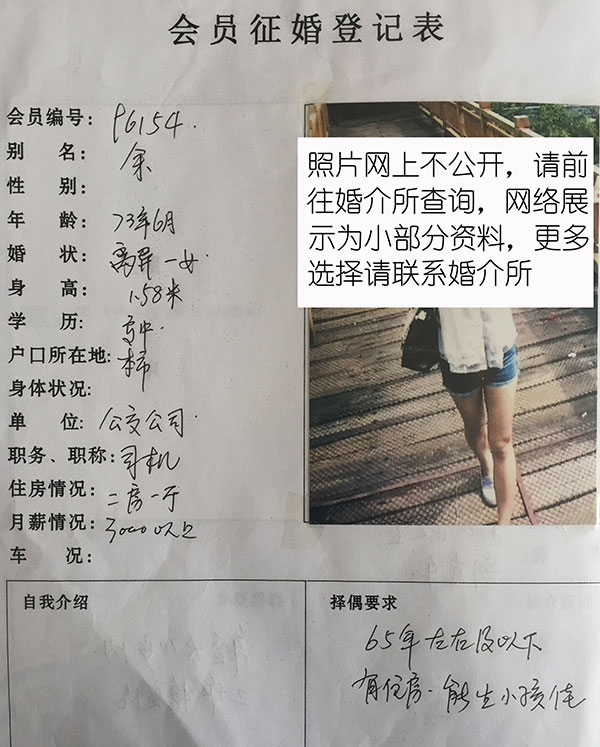 会员征婚登记表
会员编号：96154.
别名：余
性别：
年龄：73年6月
婚状：离异一女
身高：1.58米
学历：高中.
户口所在地：本市
身体状况:
单位:公交公司.
职务、职称：司机
住房情况：二房一厅
月薪情况：3000以上
车况：
照片网上不公开，请前
往婚介所查询，网络展
示为小部分资料，更多
选择请联系婚介所
自我介绍
择偶要求
65年左右及以下
有住房.能生小孩佳